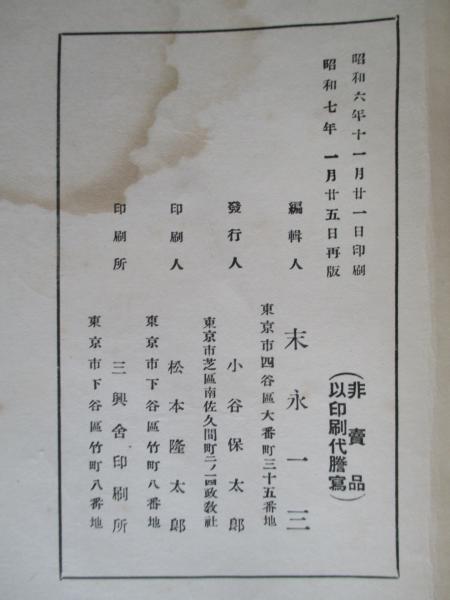 昭和六年十一月廿一日印刷
昭和七年 一月廿五日再版
(非賣品)
(以印刷代謄寫)
編輯人
東京市四谷區大番町三十五番地
末永一三
發行人
東京市芝區南佐久間町二ノ一四政教社
小谷保太郎
印刷人
東京市下谷區竹町八番地
松本隆太郎
印刷所
東京市下谷區竹町八番地
三興舍印刷所